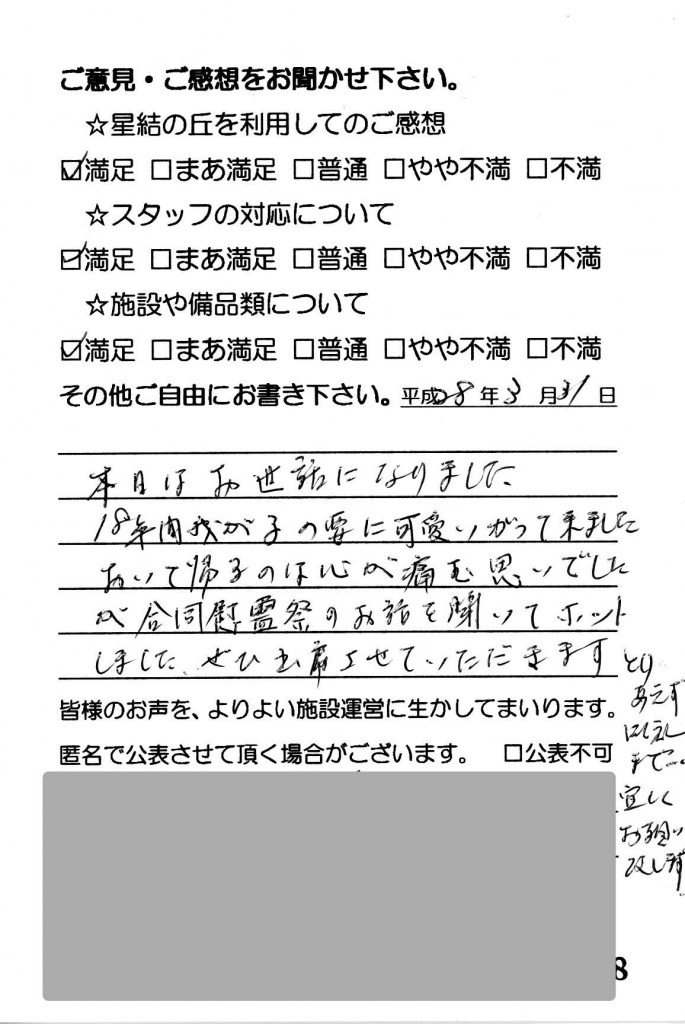 ご意見・ご感想をお聞かせ下さい。
☆星結の丘を利用してのご感想
☑満足 □まあ満足 □普通 □やや不満 □不満
☆スタッフの対応について
☑満足 □まあ満足 □普通 □やや不満 □不満
☆施設や備品類について
☑満足 □まあ満足 □普通 □やや不満 □不満
その他ご自由にお書き下さい。平成28年3月31日
本日はお世話になりました
18年間我が子の様に可愛いがって来ました
おいて帰るのは心が痛む思いでした
が合同慰霊祭のお話を聞いてホット
しました ぜひ出席させていただきます
とり
あえず
まで…
宜しく
お願い
致します
皆様のお声を、よりよい施設運営に生かしてまいります。
匿名で公表させて頂く場合がございます。 □公表不可
8